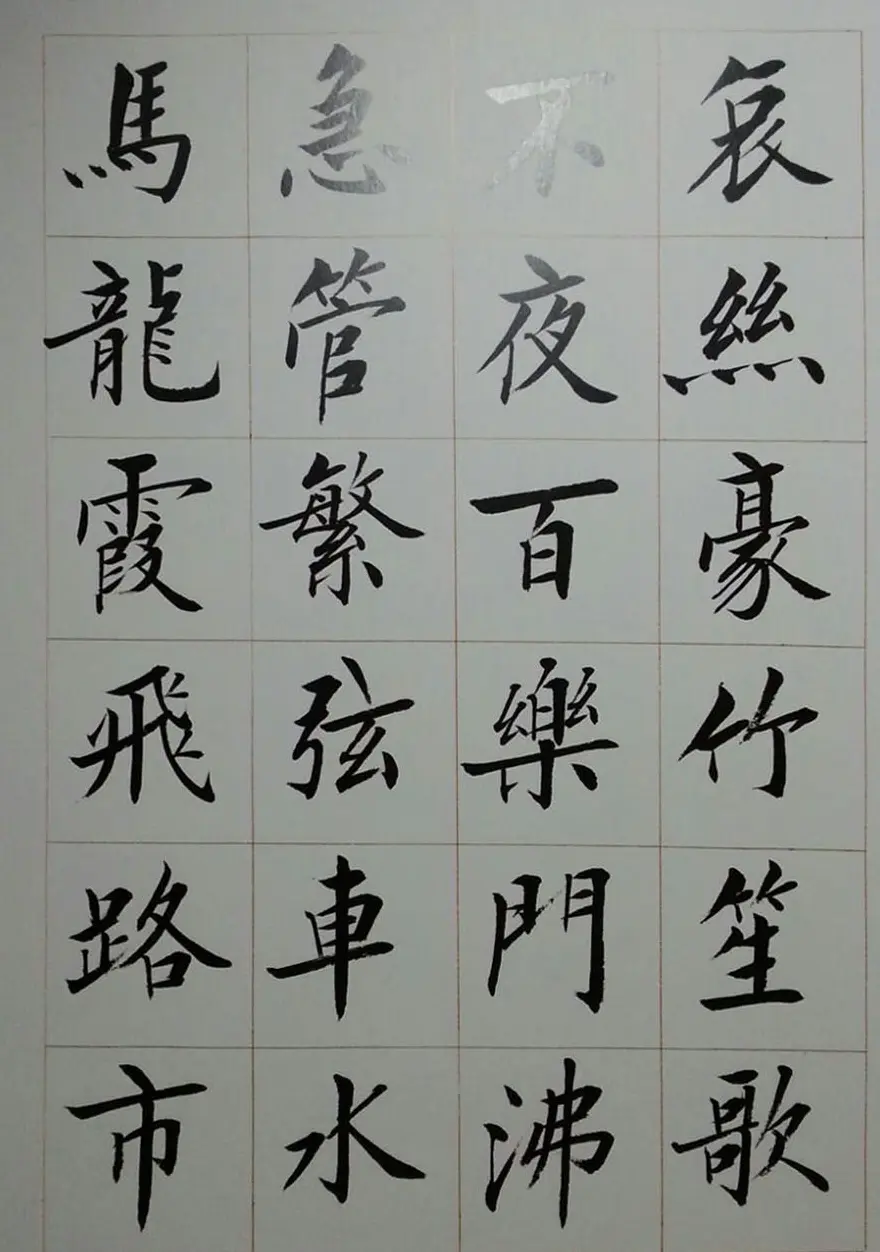 哀絲豪竹笙歌
不夜百樂門沸
急管繁弦車水
馬龍霞飛路市